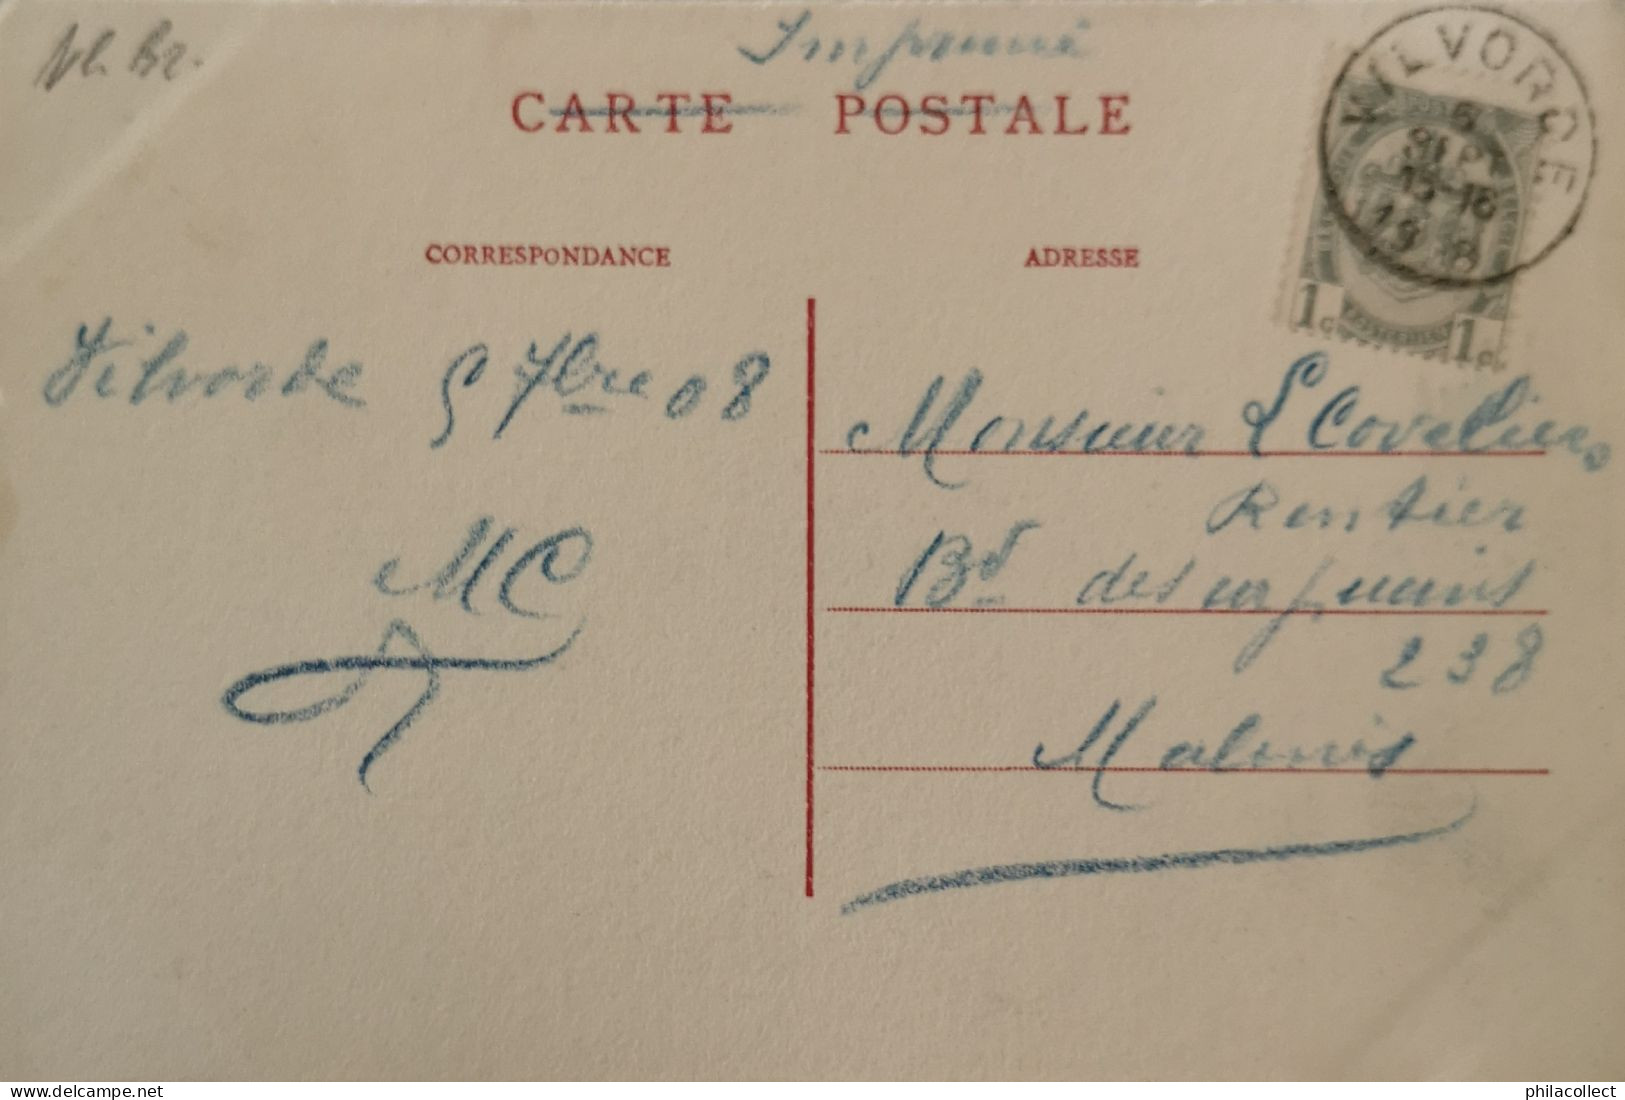 Vl. Br.
Imprimé
CARTE POSTALE
VILVORDE
5
SEPT
15-16
1908
1c 1c
CORRESPONDANCE
ADRESSE
Vilvorde 5 7bre 08
MC
Monsieur L Coveliers
Rentier
Bd des
238
Malines
philacollect